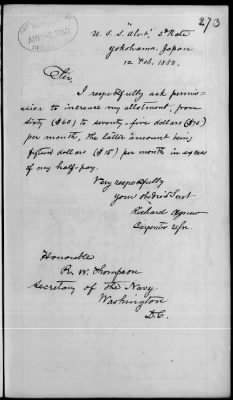 273
U.S.S. "Alert," 3d Rate
Yokohama, Japan
12 Feb. 1880.
Sir,
I respectfully ask permis-
sion to increase my allotment, from
sixty ($60) to seventy-five dollars ($75)
per month, the latter amount being
fifteen dollars ($15) per month in excess
of my half-pay.
Very respectfully
your obdt servt
Richard Agnew
Carpenter USN.
Honorable
R. W. Thompson
Secretary of the Navy
Washington
D.C.